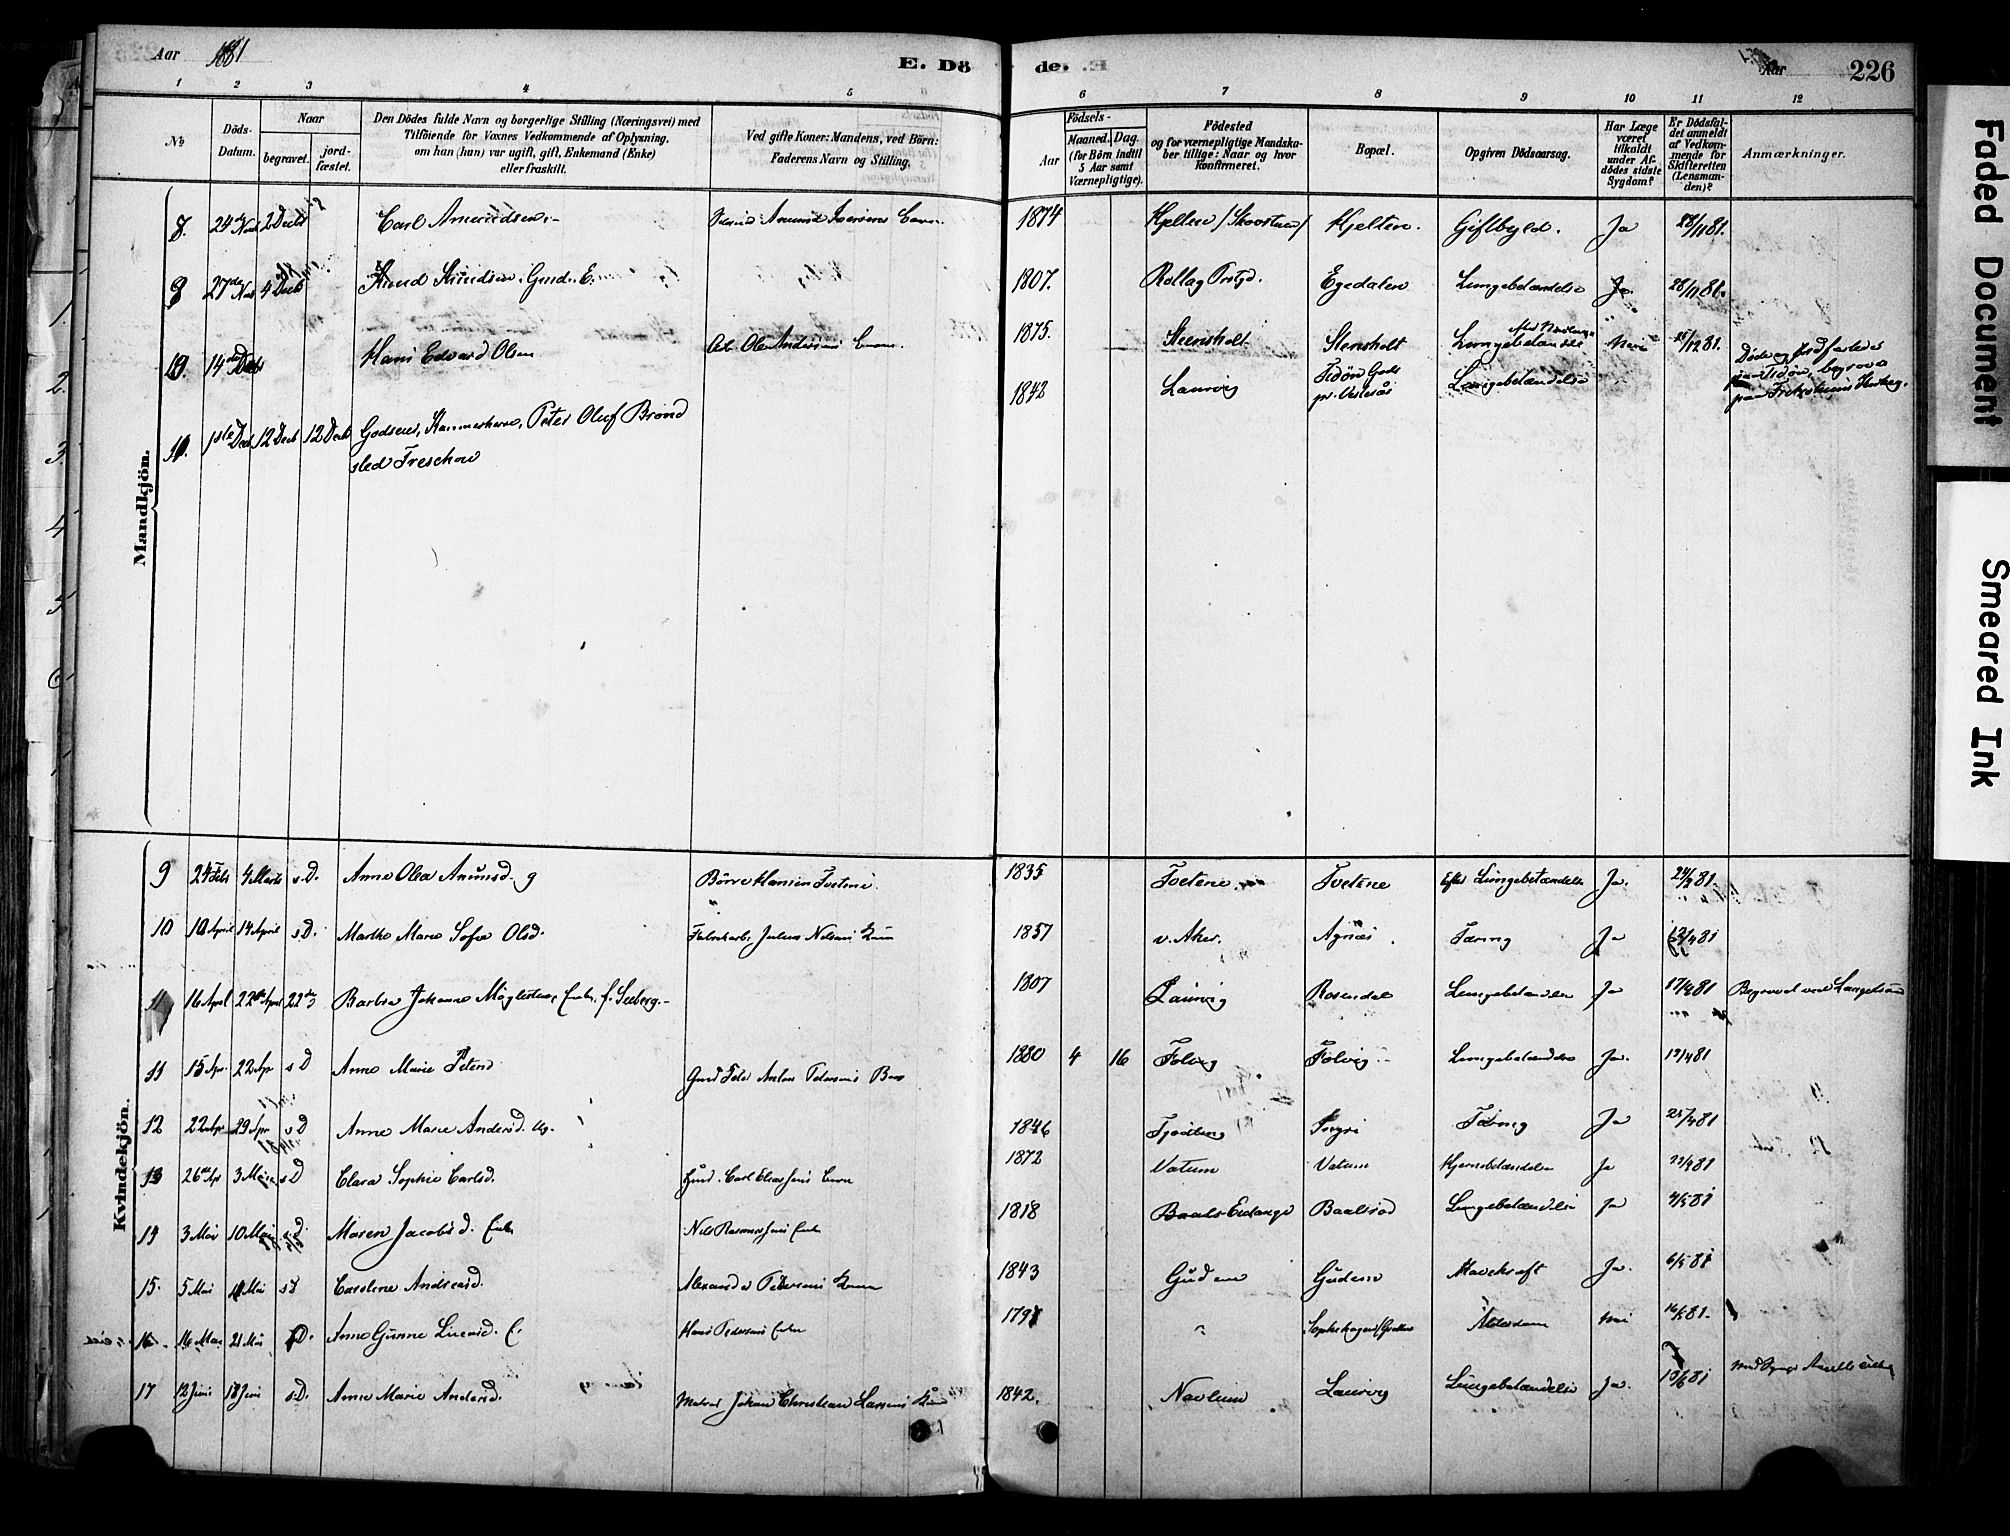 Aar 1881
E. Döde.
Aar
226
1 2 3 4 5 6 7 8 9 10 11 12
No
Döds-Datum.
Naar
begravet.
jord-fæstet.
Den Dödes fulde Navn og borgerlige Stilling (Næringsvei) med
Tilföiende for Voxnes Vedkommende af Oplysning,
om han (hun) var ugift, gift, Enkemand (Enke)
eller fraskilt.
Ved gifte Koner: Mandens, ved Börn:
Faderens Navn og Stilling.
Födsels-
Aar
Maaned. Dag.
(for Börn indtil
5 Aar samt
Værnepligtige).
Födested
og for værnepligtige Mandska-
ber tillige: Naar og hvor
konfirmeret.
Bopæl.
Opgiven Dödsaarsag.
Har Læge
været
tilkaldt
under Af-
dödes sidste
Sygdom?
Er Dödsfal-
det anmeldt
af Vedkom-
mende for
Skifteretten
(Lensman-
den)?
Anmærkninger.
Mandkjön.
8. 24de Novb 2 Decbr Carl Amundsen Amund Iversens 1874 Kjelten Kjelten. Giftbyld. Ja 28/11 81.
9 27de Nov 4 Decbr Knud Knudsen, Gmd. E. 1807. Rollag Prstgd. Egedalen Lungebetændelse Ja 28/11 81.
10. 14de Decbr Hans Edvard Olsen Arb. Ole Andersens 1875. Steensholt Stensholt Lungebetændelse 15/12 81.
11. 1ste Dec 12 Decb 12 Decb Godseier, Kammerherre, Peter Oluf Brönd
sled Treschow 1842 Laurvig Tidön Gods
pr. Vestesås Lungebetændelse Döde og jordfæstedes
paa Tidön, begravet
paa Fritzöhuus
Kvindekjön.
9 24 Feb 4 Marts s.D. Anne Olea Amunsd. g Börre Hansen Tvetene 1835 Tvetene Tvetene Efter Lungebetændelse Ja. 24/2 81
10 10 April 14 April s.D. Marthe Marie Sofie Olsd. Fabrikarb. Julius Nilsens Kone 1857 v. Aker. Agnæs. Tæring Ja 12/4 81
11 16 April 22de April 22de Barbra Johanne Möglestue, Enke, f. Seeberg. 1807 Laurvig Rosendal Lungebetændelse Ja 17/4 81 Begravet ved Langesund
11 15 Apr. 22 Apr s D Anne Marie Petersd Gmd Peder Anton Pedersens Barn 1880 4 16 Tolvig Tolvig Lungebetændelse Ja. 19/4 81
12 22 Apr 29 Apr s D Anne Marie Andersd. ug. 1846 Tjodling Tæring Ja 25/4 81
13 26de Ap 3 Mai s D Clara Sophie Carlsd. Gmd. Carl Eliassens Barn 1872 Vatum Vatum Hjernebetændelse Ja 27/4 81
14 3 Mai 10 Mai s.D. Maren Jacobsd. Enke Nils Rasmussens Enke 1818 Baalsrød Lungebetændelse Ja 4/5 81
15. 5 Mai 11 Mai s D Caroline Andreasd. Alexander Pedersens Kone 1843 Gudem Gudem Mavekræft Ja. 6/5 81
16 16 Mai 21 Mai s D. Anne Gunne Larsd. E. Hans Pedersens Enke 1797 " Alderdom nei 16/5 81.
17 12 Juni 18 Juni s.D. Anne Marie Andersd. Matros Johan Christian Larsens Kone 1842. Navlum Laurvig Lungebetændelse Ja. 13/6 81
1. 2. 3. 4 5 6
Faded Document
Smeared Ink